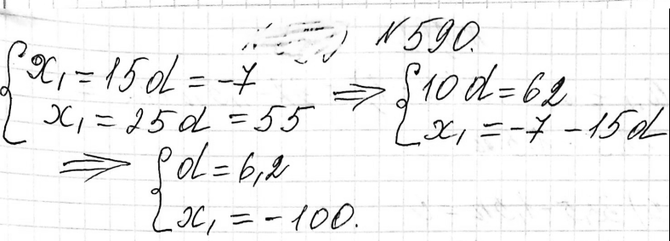 N590.
{ x₁ = 15d = -7
x₁ = 25d = 55 ⇒ { 10d = 62
x₁ = -7 - 15d
⇒ { d = 6,2
x₁ = -100.